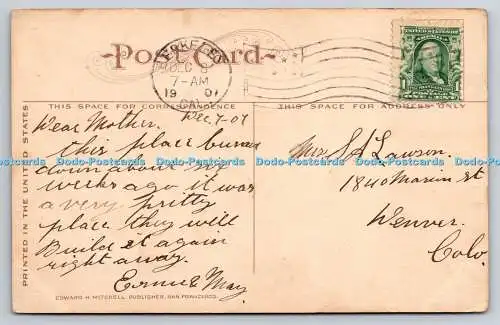 Post Card
DEC 8
7-AM
1907
CAL
THIS SPACE FOR CORRESPONDENCE
THIS SPACE FOR ADDRESS ONLY
Dec, 7-07
Dear Mother.
this place burned
down about
weeks ago it was
a very pritty
place they will
Build it again
right away.
Ernie & May
Mrs S A Lawson.
1840 Marion st
Denver.
Colo.
PRINTED IN THE UNITED STATES
EDWARD H. MITCHELL, PUBLISHER, SAN FRANCISCO.
Dodo-Postcards Dodo-Postcards Dodo-Postcards Dodo-Postcards Dodo-Postcards